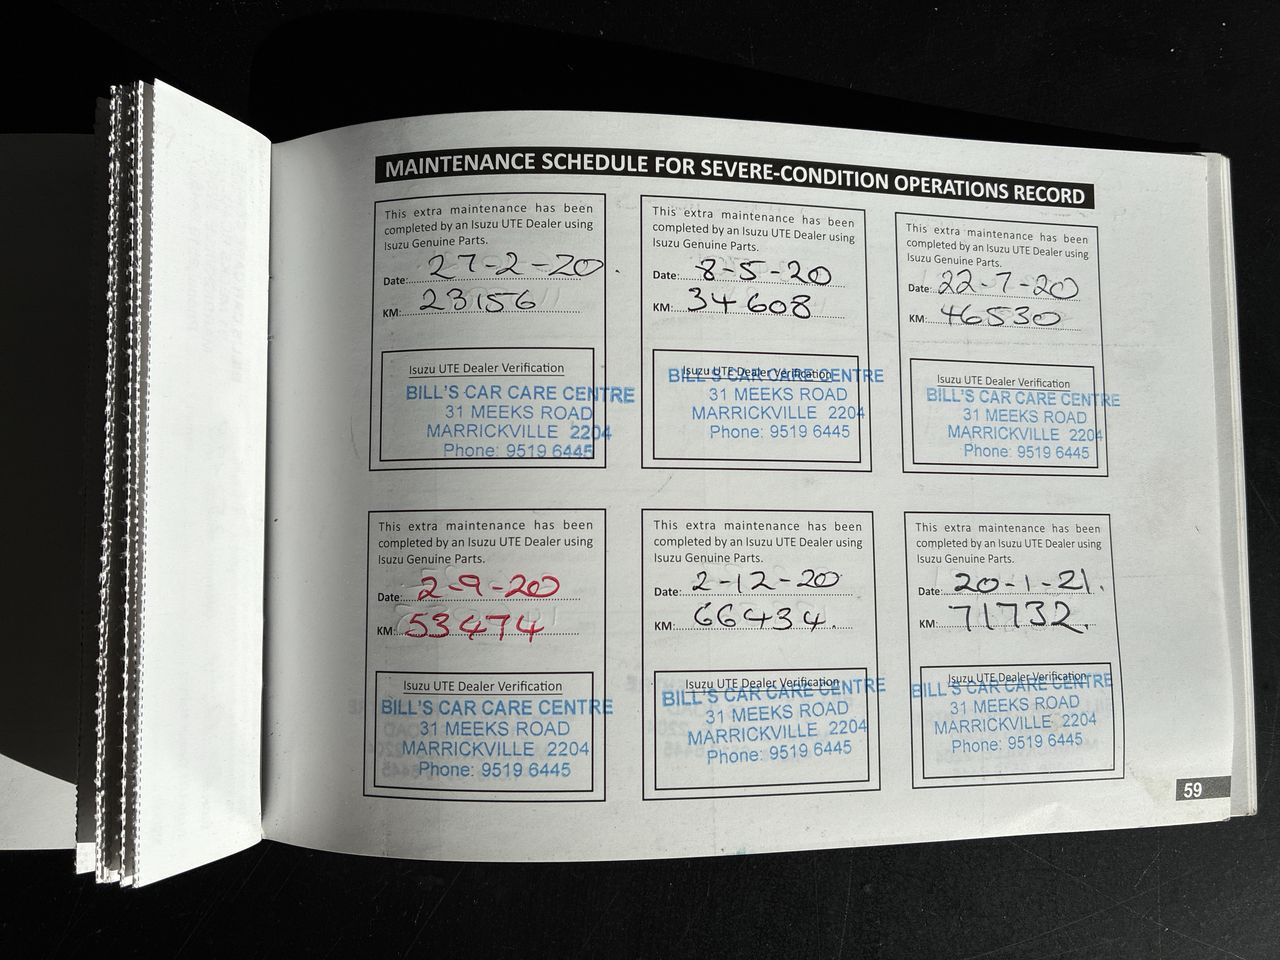 MAINTENANCE SCHEDULE FOR SEVERE-CONDITION OPERATIONS RECORD
This extra maintenance has been
completed by an Isuzu UTE Dealer using
Isuzu Genuine Parts.
Date: 27-2-20.
KM: 23156
Isuzu UTE Dealer Verification
BILL'S CAR CARE CENTRE
31 MEEKS ROAD
MARRICKVILLE 2204
Phone: 9519 6445
This extra maintenance has been
completed by an Isuzu UTE Dealer using
Isuzu Genuine Parts.
Date: 8-5-20
KM: 34608
Isuzu UTE Dealer Verification
BILL'S CAR CARE CENTRE
31 MEEKS ROAD
MARRICKVILLE 2204
Phone: 9519 6445
This extra maintenance has been
completed by an Isuzu UTE Dealer using
Isuzu Genuine Parts.
Date: 22-7-20
KM: 46530
Isuzu UTE Dealer Verification
BILL'S CAR CARE CENTRE
31 MEEKS ROAD
MARRICKVILLE 2204
Phone: 9519 6445
This extra maintenance has been
completed by an Isuzu UTE Dealer using
Isuzu Genuine Parts.
Date: 2-9-20
KM: 53474
Isuzu UTE Dealer Verification
BILL'S CAR CARE CENTRE
31 MEEKS ROAD
MARRICKVILLE 2204
Phone: 9519 6445
This extra maintenance has been
completed by an Isuzu UTE Dealer using
Isuzu Genuine Parts.
Date: 2-12-20
KM: 66434.
Isuzu UTE Dealer Verification
BILL'S CAR CARE CENTRE
31 MEEKS ROAD
MARRICKVILLE 2204
Phone: 9519 6445
This extra maintenance has been
completed by an Isuzu UTE Dealer using
Isuzu Genuine Parts.
Date: 20-1-21.
KM: 71732.
Isuzu UTE Dealer Verification
BILL'S CAR CARE CENTRE
31 MEEKS ROAD
MARRICKVILLE 2204
Phone: 9519 6445
59